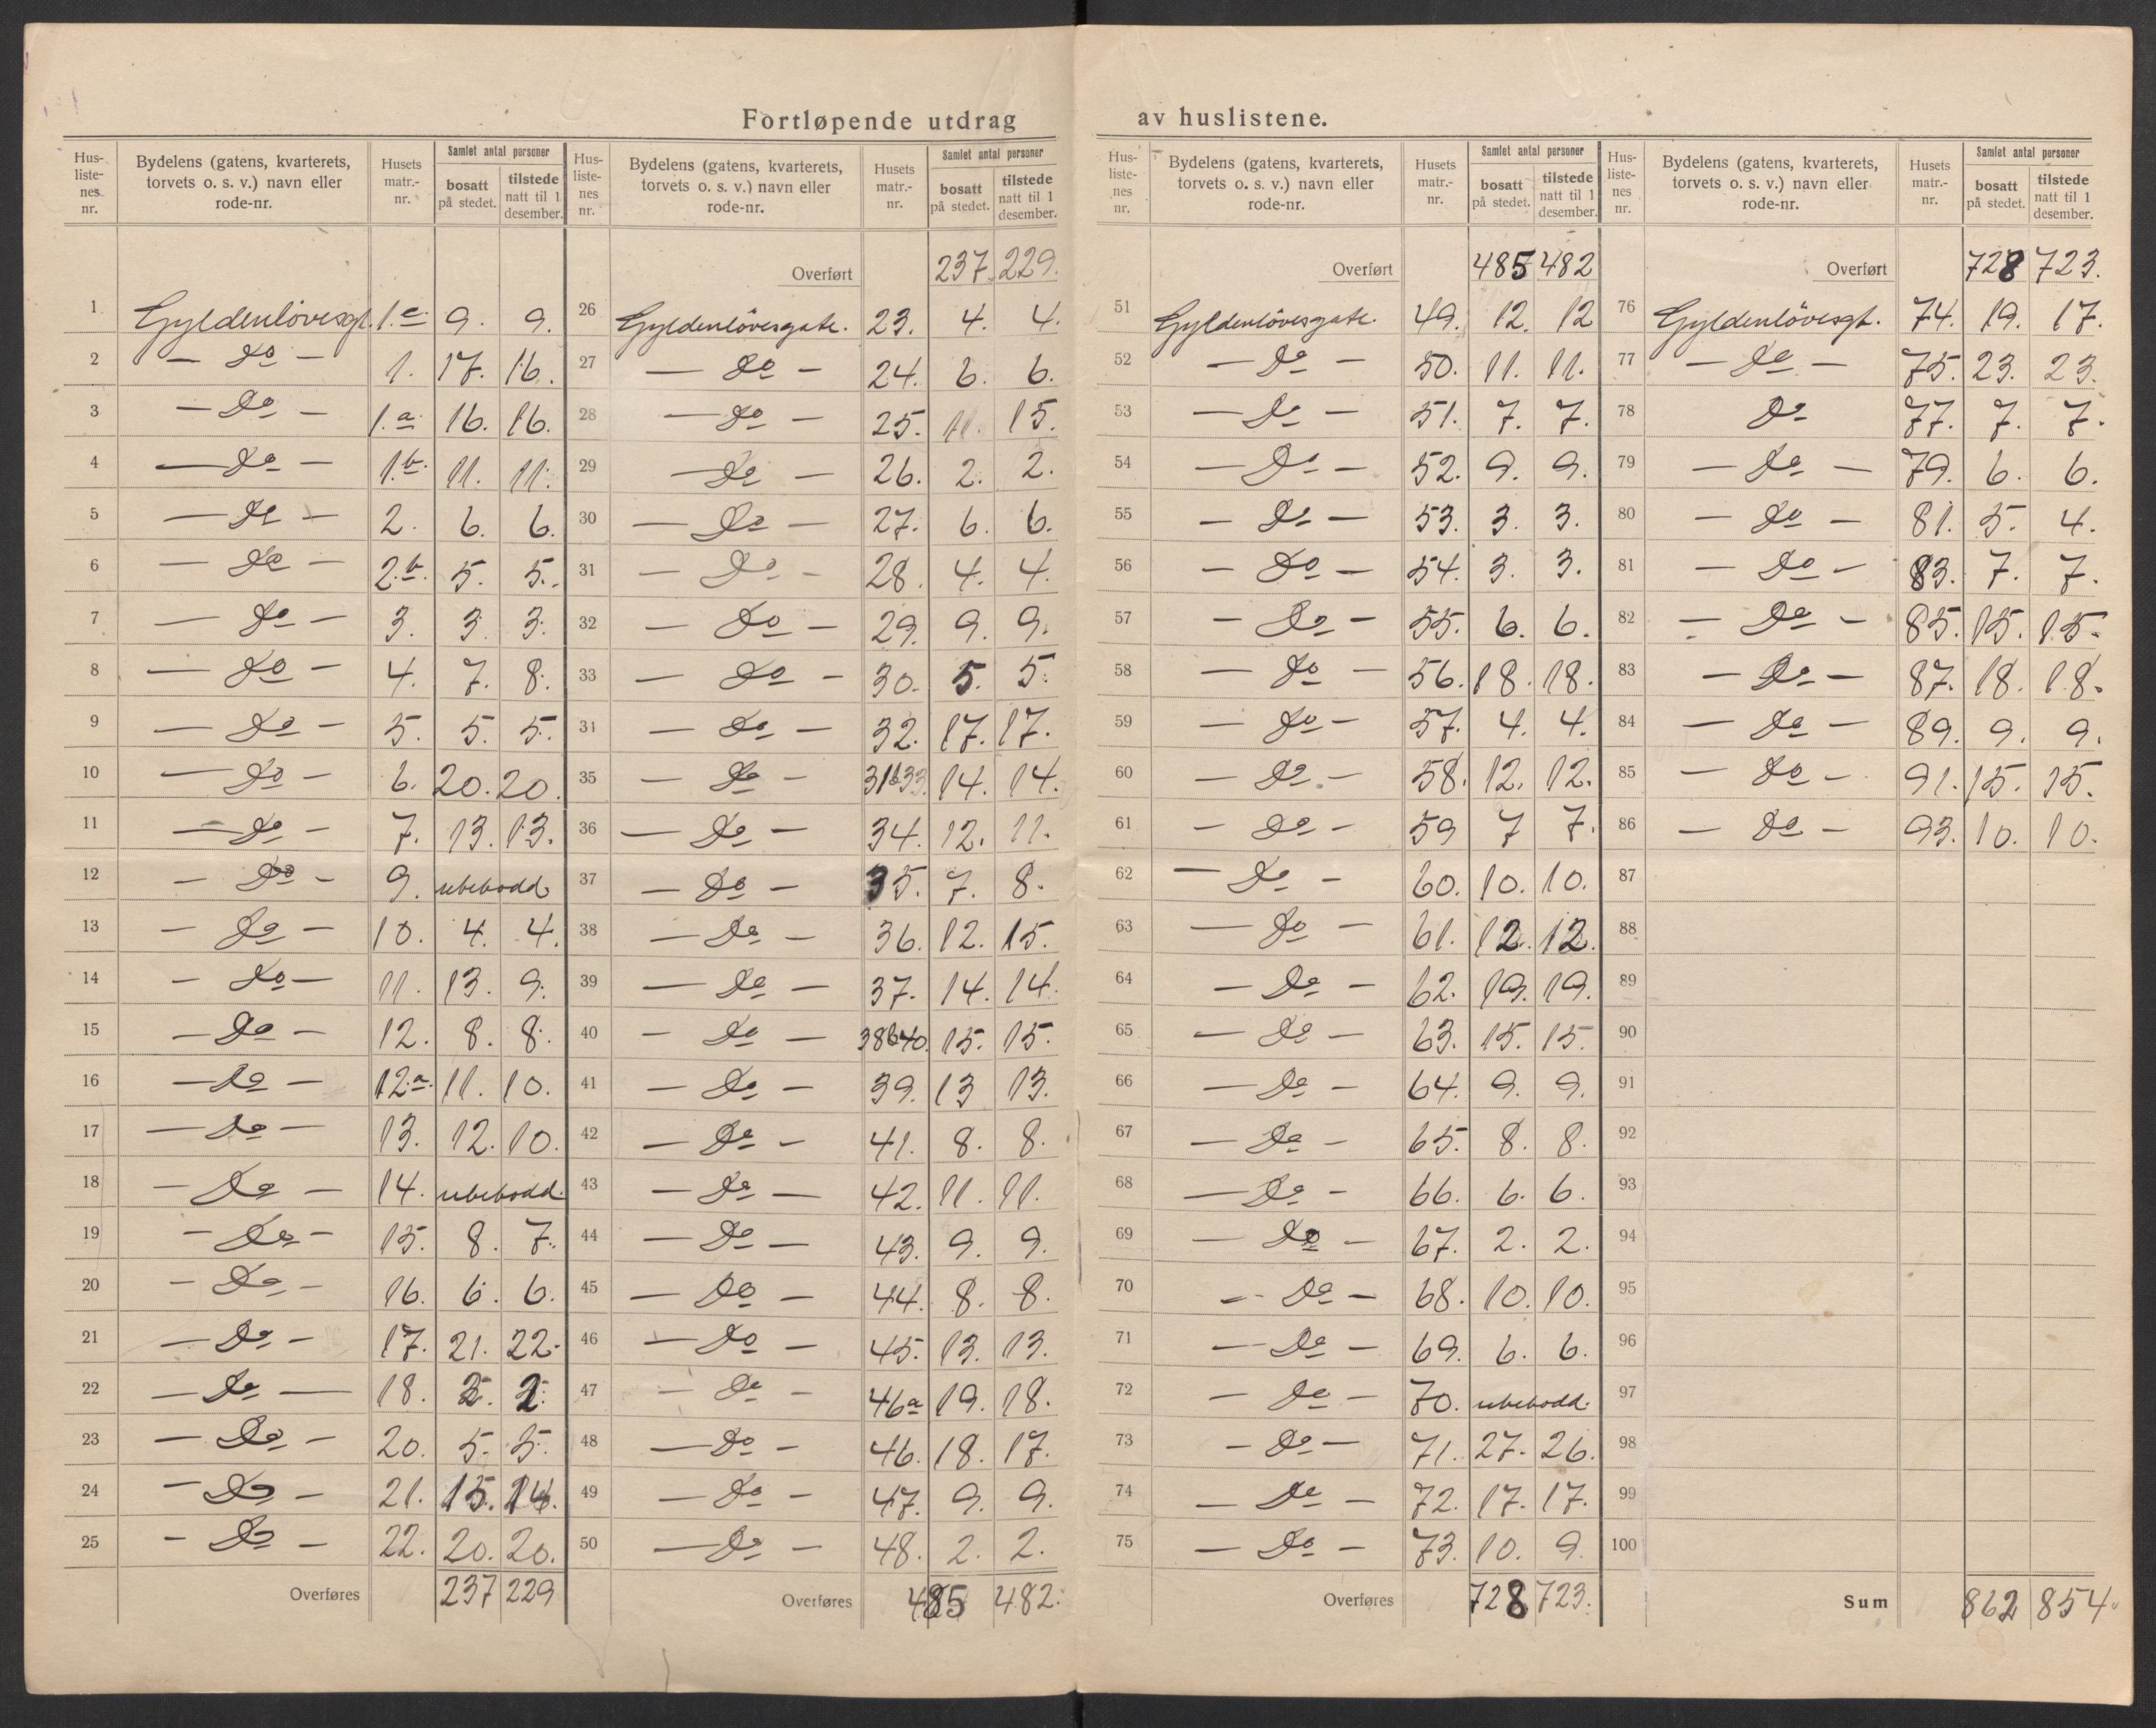 Fortløpende utdrag av huslistene.
Hus-listenes nr. | Bydelens (gatens, kvarterets, torvets o. s. v.) navn eller rode-nr. | Husets matr.-nr. | Samlet antal personer | bosatt på stedet. | tilstede natt til 1 desember.
1 Gyldenlövesgt. 1.c. 9. 9.
2 — Do — 1. 17. 16.
3 — Do — 1.a. 16. 16.
4 — Do — 1.b. 11. 11.
5 — Do — 2. 6. 6.
6 — Do — 2.b. 5. 5.
7 — Do — 3. 3. 3.
8 — Do — 4. 7. 8.
9 — Do — 5. 5. 5.
10 — Do — 6. 20. 20.
11 — Do — 7. 13. 13.
12 — Do — 9. ubebodd
13 — Do — 10. 4. 4.
14 — Do — 11. 13. 9.
15 — Do — 12. 8. 8.
16 — Do — 12.a. 11. 10.
17 — Do — 13. 12. 10.
18 — Do — 14. ubebodd.
19 — Do — 15. 8. 7.
20 — Do — 16. 6. 6.
21 — Do — 17. 21. 22.
22 — Do — 18. 2. 2.
23 — Do — 20. 5. 5.
24 — Do — 21. 15. 14.
25 — Do — 22. 20. 20.
Overføres 237 229
Hus-listenes nr. | Bydelens (gatens, kvarterets, torvets o. s. v.) navn eller rode-nr. | Husets matr.-nr. | Samlet antal personer | bosatt på stedet. | tilstede natt til 1 desember.
Overført 237. 229.
26 Gyldenlövesgate. 23. 4. 4.
27 — Do — 24. 6. 6.
28 — Do — 25. 11. 15.
29 — Do — 26. 2. 2.
30 — Do — 27. 6. 6.
31 — Do — 28. 4. 4.
32 — Do — 29. 9. 9.
33 — Do — 30. 5. 5.
34 — Do — 32. 17. 17.
35 — Do — 31b33. 14. 14.
36 — Do — 34. 12. 11.
37 — Do — 35. 7. 8.
38 — Do — 36. 12. 15.
39 — Do — 37. 14. 14.
40 — Do — 38b40. 15. 15.
41 — Do — 39. 13 13.
42 — Do — 41. 8. 8.
43 — Do — 42. 11. 11.
44 — Do — 43. 9. 9.
45 — Do — 44. 8. 8.
46 — Do — 45. 13. 13.
47 — Do — 46a 19. 18.
48 — Do — 46. 18. 17.
49 — Do — 47. 9. 9.
50 — Do — 48. 2. 2.
Overføres 485 482.
Hus-listenes nr. | Bydelens (gatens, kvarterets, torvets o. s. v.) navn eller rode-nr. | Husets matr.-nr. | Samlet antal personer | bosatt på stedet. | tilstede natt til 1 desember.
Overført 485 482
51 Gyldenlövesgate. 49. 12. 12
52 — Do — 50. 11. 11.
53 — Do — 51. 7. 7.
54 — Do — 52. 9. 9.
55 — Do — 53. 3. 3.
56 — Do — 54. 3. 3.
57 — Do — 55. 6. 6.
58 — Do — 56. 18. 18.
59 — Do — 57. 4. 4.
60 — Do — 58. 12. 12.
61 — Do — 59 7 7.
62 — Do — 60. 10. 10.
63 — Do — 61. 12. 12.
64 — Do — 62. 19. 19.
65 — Do — 63. 15. 15.
66 — Do — 64. 9. 9.
67 — Do — 65. 8. 8.
68 — Do — 66. 6. 6.
69 — Do — 67. 2. 2.
70 — Do — 68. 10. 10.
71 — Do — 69. 6. 6.
72 — Do — 70. ubebodd.
73 — Do — 71. 27. 26.
74 — Do — 72. 17. 17.
75 — Do — 73. 10. 9.
Overføres 728 723.
Hus-listenes nr. | Bydelens (gatens, kvarterets, torvets o. s. v.) navn eller rode-nr. | Husets matr.-nr. | Samlet antal personer | bosatt på stedet. | tilstede natt til 1 desember.
Overført 728 723.
76 Gyldenlövesgt. 74. 19. 17.
77 — Do — 75. 23. 23.
78 Do 77. 7. 7.
79 — Do — 79. 6. 6.
80 — Do — 81. 5. 4.
81 — Do — 83. 7. 7.
82 — Do — 85. 15. 15.
83 — Do — 87. 18. 18.
84 — Do — 89. 9. 9.
85 — Do — 91. 15. 15.
86 — Do — 93. 10. 10.
87
88
89
90
91
92
93
94
95
96
97
98
99
100
Sum 862 854.